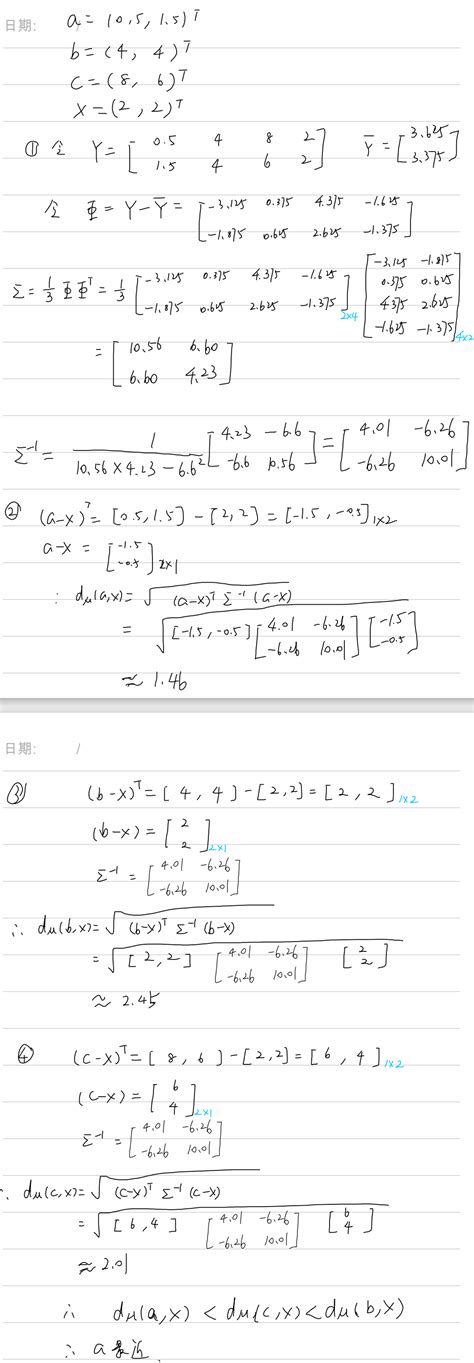 日期:
a = (0.5, 1.5)ᵀ
b = (4, 4)ᵀ
c = (8, 6)ᵀ
x = (2, 2)ᵀ
① 令 Y = [ 0.5 4 8 2 ] Ȳ = [ 3.625 ]
[ 1.5 4 6 2 ] [ 3.375 ]
令 Φ = Y - Ȳ = [ -3.125 0.375 4.375 -1.625 ]
[ -1.875 0.625 2.625 -1.375 ]
Σ = 1/3 ΦΦᵀ = 1/3 [ -3.125 0.375 4.375 -1.625 ] [ -3.125 -1.875 ]
[ -1.875 0.625 2.625 -1.375 ] 2x4 [ 0.375 0.625 ]
[ 4.375 2.625 ]
[ -1.625 -1.375 ] 4x2
= [ 10.56 6.60 ]
[ 6.60 4.23 ]
Σ⁻¹ = 1 / (10.56 × 4.23 - 6.6²) [ 4.23 -6.6 ] = [ 4.01 -6.26 ]
[ -6.6 10.56 ] [ -6.26 10.01 ]
② (a-x)ᵀ = [0.5, 1.5] - [2, 2] = [-1.5, -0.5] 1x2
a-x = [ -1.5 ]
[ -0.5 ] 2x1
∴ dμ(a,x) = √((a-x)ᵀ Σ⁻¹ (a-x))
= √([-1.5, -0.5] [ 4.01 -6.26 ] [ -1.5 ]
[ -6.26 10.01 ] [ -0.5 ])
≈ 1.46
日期: /
③ (b-x)ᵀ = [4, 4] - [2,2] = [2, 2] 1x2
(b-x) = [ 2 ]
[ 2 ] 2x1
Σ⁻¹ = [ 4.01 -6.26 ]
[ -6.26 10.01 ]
∴ dμ(b,x) = √((b-x)ᵀ Σ⁻¹ (b-x))
= √([2, 2] [ 4.01 -6.26 ] [ 2 ]
[ -6.26 10.01 ] [ 2 ])
≈ 2.45
④ (c-x)ᵀ = [8, 6] - [2,2] = [6, 4] 1x2
(c-x) = [ 6 ]
[ 4 ] 2x1
Σ⁻¹ = [ 4.01 -6.26 ]
[ -6.26 10.01 ]
∴ dμ(c,x) = √((c-x)ᵀ Σ⁻¹ (c-x))
= √([6, 4] [ 4.01 -6.26 ] [ 6 ]
[ -6.26 10.01 ] [ 4 ])
≈ 2.01
∴ dμ(a,x) < dμ(c,x) < dμ(b,x)
∴ a 最近.